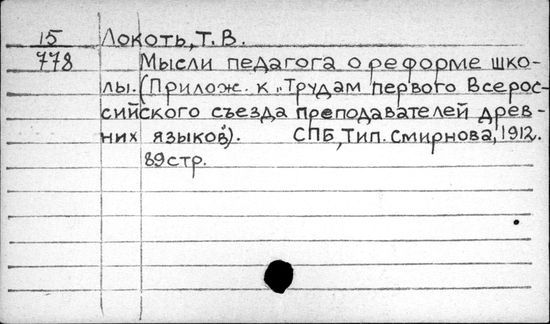 15 Локоть, Т. В.
778 Мысли педагога о реформе шко-
лы. (Прилож. к „Трудам первого Всерос-
сийского съезда преподавателей древ-
них языков). СПБ, Тип. Смирнова, 1912.
89 стр.